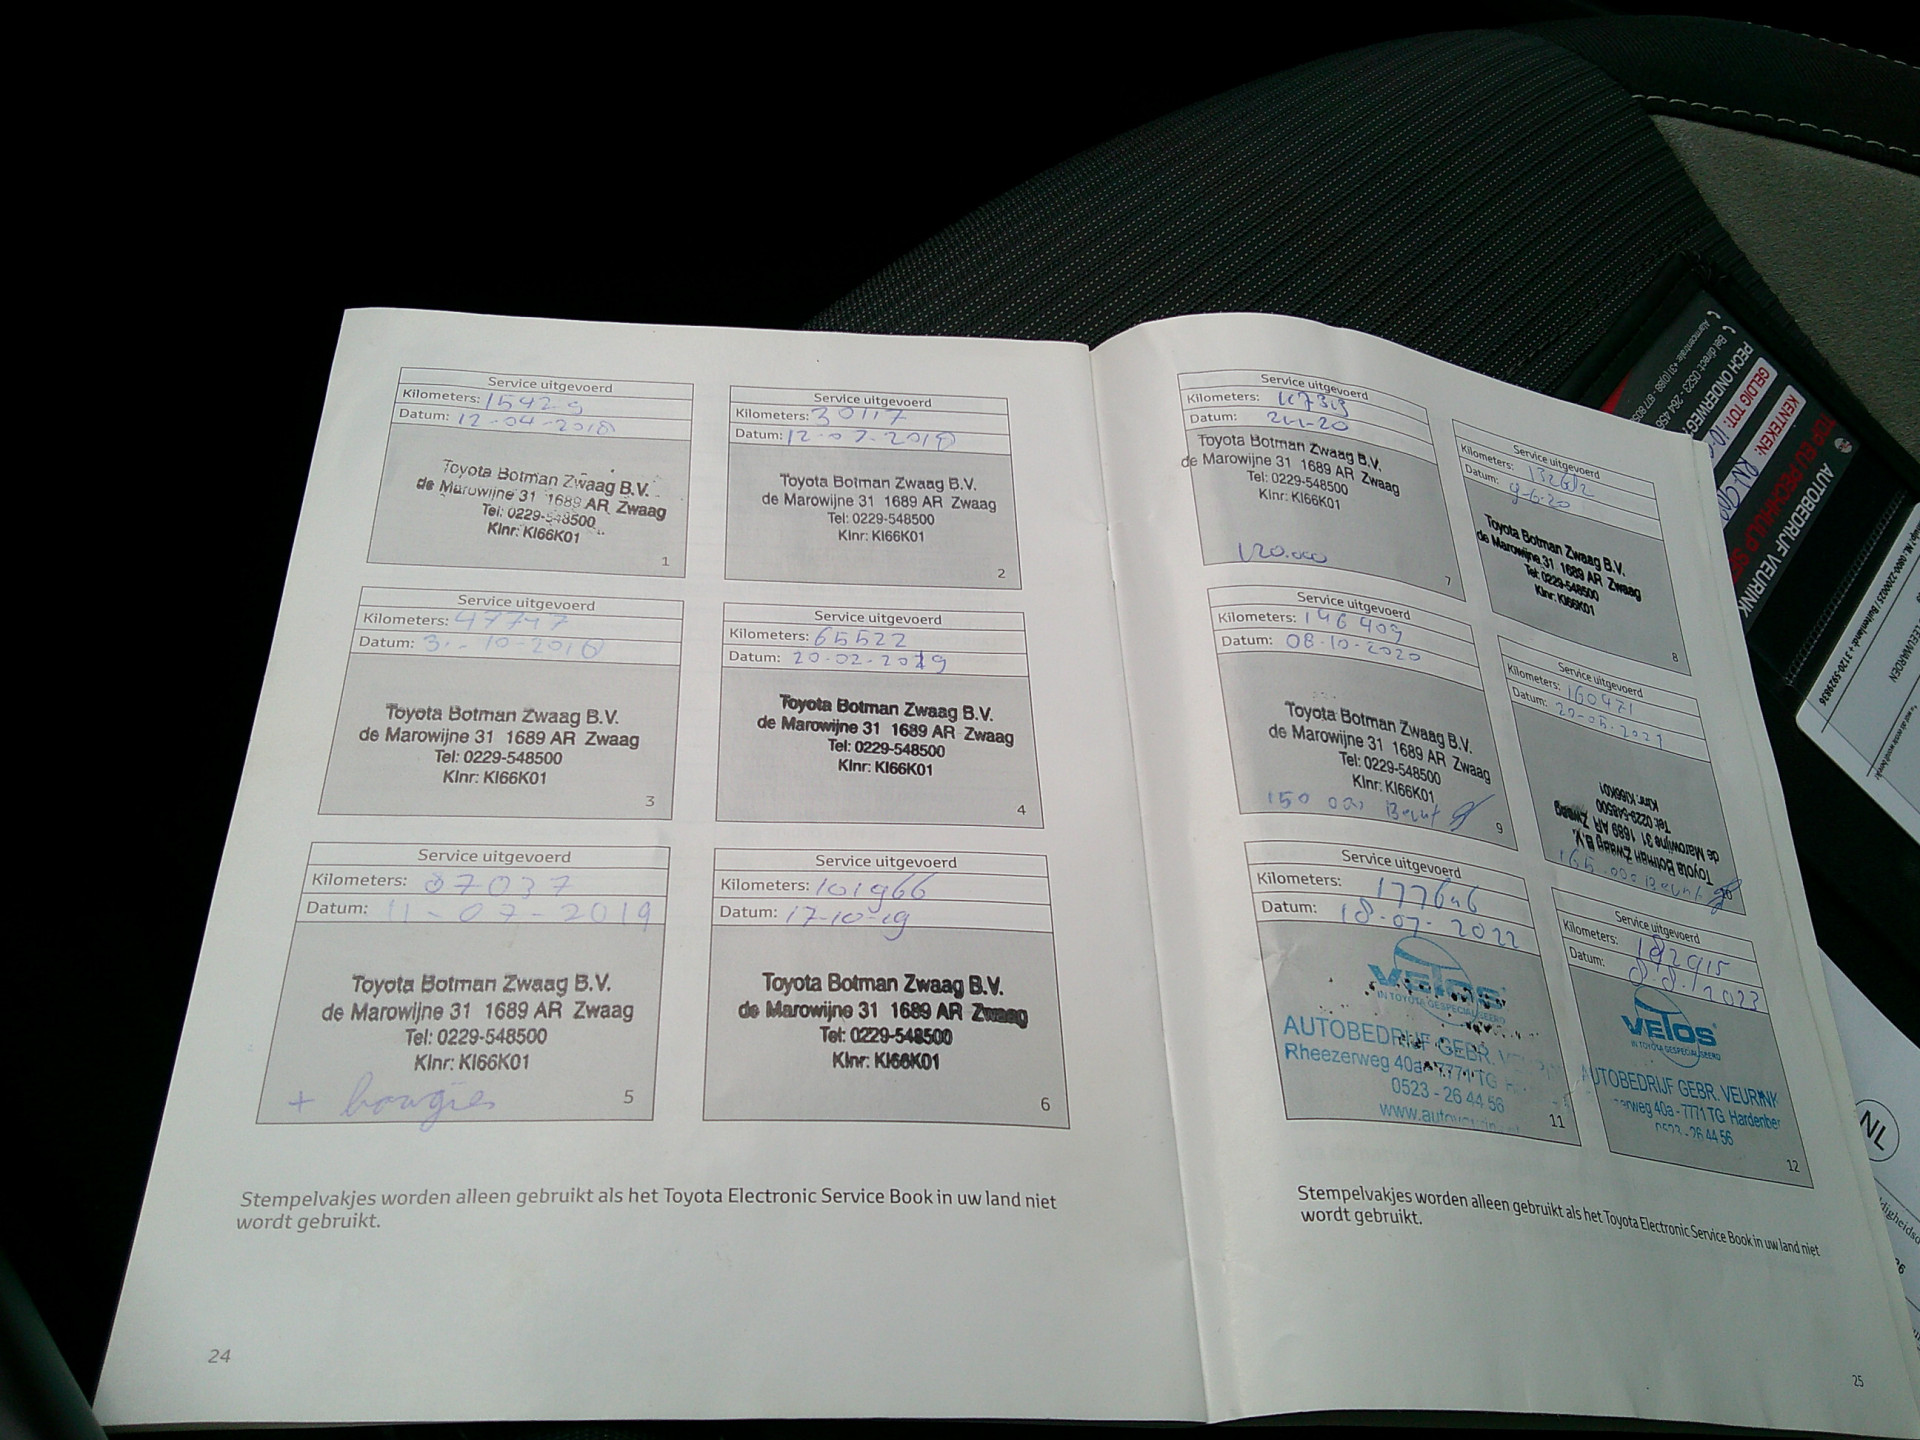 Service uitgevoerd
Kilometers: 15429
Datum: 12-04-2018
Toyota Botman Zwaag B.V.
de Marowijne 31 1689 AR Zwaag
Tel: 0229-548500
Klnr: KI66K01
1
Service uitgevoerd
Kilometers: 30117
Datum: 12-07-2018
Toyota Botman Zwaag B.V.
de Marowijne 31 1689 AR Zwaag
Tel: 0229-548500
Klnr: KI66K01
2
Service uitgevoerd
Kilometers: 47747
Datum: 31-10-2018
Toyota Botman Zwaag B.V.
de Marowijne 31 1689 AR Zwaag
Tel: 0229-548500
Klnr: KI66K01
3
Service uitgevoerd
Kilometers: 65522
Datum: 20-02-2019
Toyota Botman Zwaag B.V.
de Marowijne 31 1689 AR Zwaag
Tel: 0229-548500
Klnr: KI66K01
4
Service uitgevoerd
Kilometers: 87037
Datum: 11-07-2019
Toyota Botman Zwaag B.V.
de Marowijne 31 1689 AR Zwaag
Tel: 0229-548500
Klnr: KI66K01
+ bougies
5
Service uitgevoerd
Kilometers: 101966
Datum: 17-10-19
Toyota Botman Zwaag B.V.
de Marowijne 31 1689 AR Zwaag
Tel: 0229-548500
Klnr: KI66K01
6
Stempelvakjes worden alleen gebruikt als het Toyota Electronic Service Book in uw land niet
wordt gebruikt.
24
Service uitgevoerd
Kilometers: 117319
Datum: 21-1-20
Toyota Botman Zwaag B.V.
de Marowijne 31 1689 AR Zwaag
Tel: 0229-548500
Klnr: KI66K01
120.000
7
Service uitgevoerd
Kilometers:
Datum: 9-6-20
Toyota Botman Zwaag B.V.
de Marowijne 31 1689 AR Zwaag
Tel: 0229-548500
Klnr: KI66K01
8
Service uitgevoerd
Kilometers: 146409
Datum: 08-10-2020
Toyota Botman Zwaag B.V.
de Marowijne 31 1689 AR Zwaag
Tel: 0229-548500
Klnr: KI66K01
150 000 Beurt
9
Service uitgevoerd
Kilometers: 160471
Datum: 20-05-2021
Toyota Botman Zwaag B.V.
de Marowijne 31 1689 AR Zwaag
Tel: 0229-548500
Klnr: KI66K01
165.000 Beurt
10
Service uitgevoerd
Kilometers: 177646
Datum: 18-07-2022
VETOS
IN TOYOTA GESPECIALISEERD
AUTOBEDRIJF GEBR.
Rheezerweg 40a - 7771 TG
0523 - 26 44 56
11
Service uitgevoerd
Kilometers: 192915
Datum: 8-8-2023
VETOS
IN TOYOTA GESPECIALISEERD
AUTOBEDRIJF GEBR. VEURINK
40a - 7771 TG Hardenber
0523 - 26 44 56
12
Stempelvakjes worden alleen gebruikt als het Toyota Electronic Service Book in uw land niet
wordt gebruikt.
25
AUTOBEDRIJF VEURINK
TOP EU PECHHULP
KENTEKEN:
GELDIG TOT:
PECH ONDERWEG?
Bel direct: 0523 - 264 456
LEEUWARDEN
NL